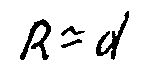 R ≃ d